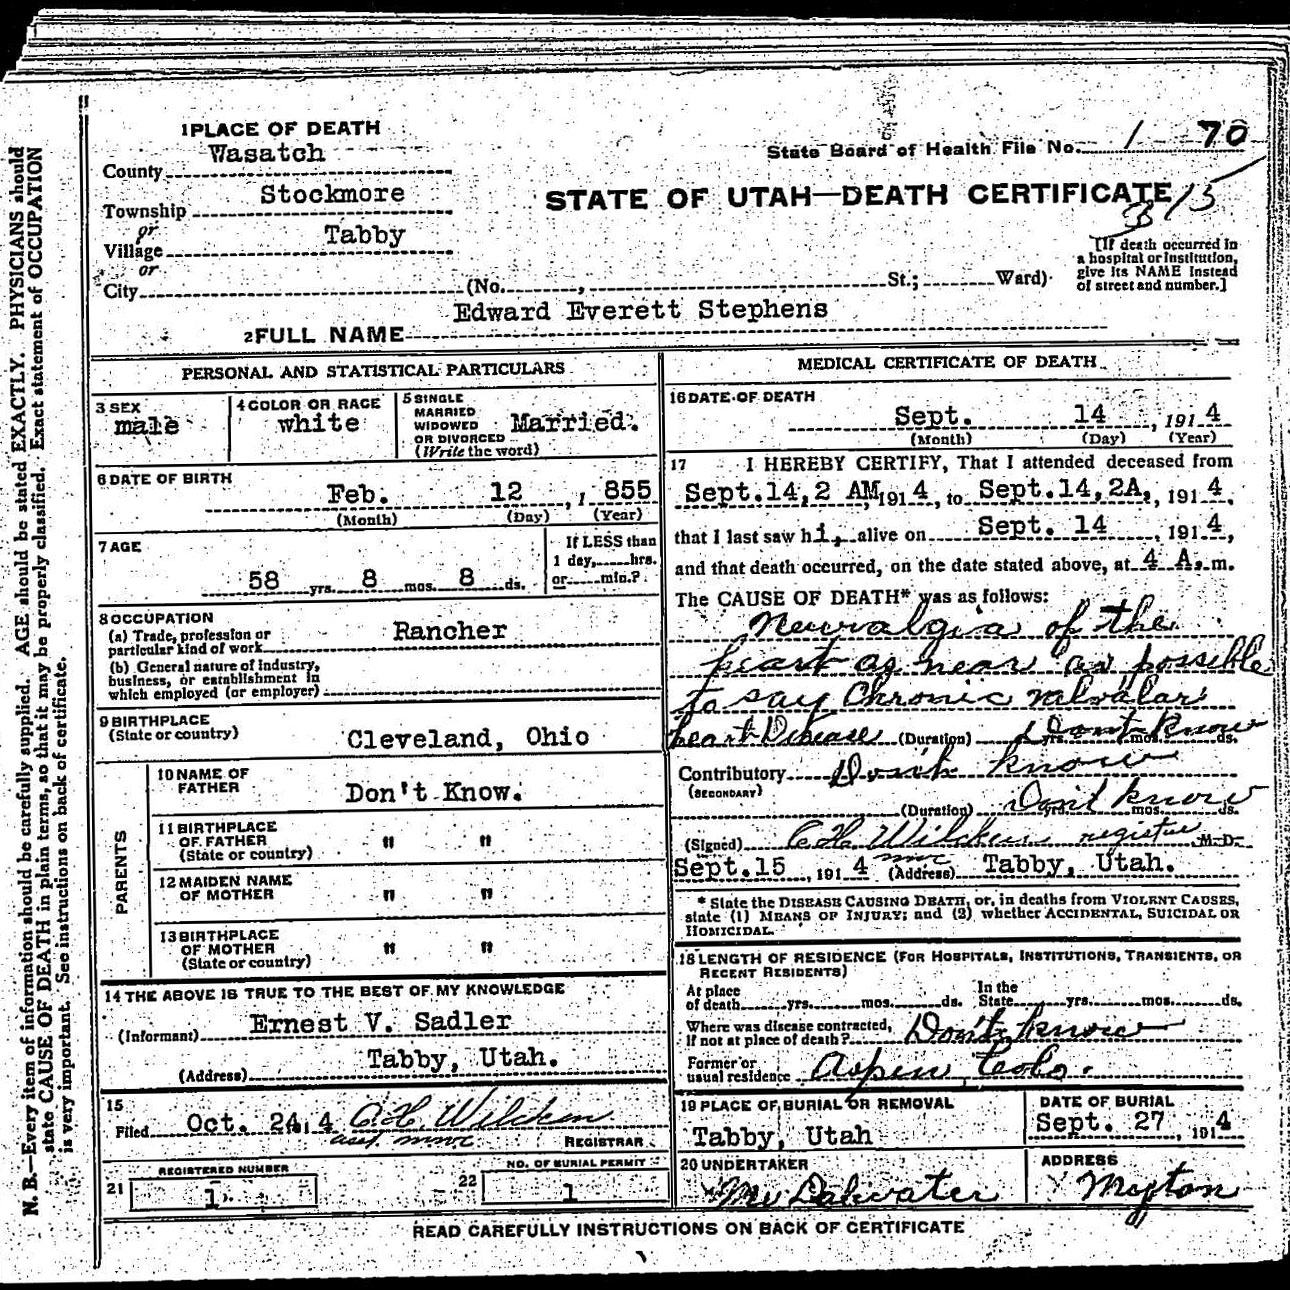 1 PLACE OF DEATH
County Wasatch
State Board of Health File No. 1 70
Township Stockmore
STATE OF UTAH—DEATH CERTIFICATE
315
or
Village Tabby
or
[If death occurred in
a hospital or institution,
give its NAME instead
of street and number.]
City (No. , St.; Ward)
2 FULL NAME Edward Everett Stephens
PERSONAL AND STATISTICAL PARTICULARS
3 SEX
male
4 COLOR OR RACE
white
5 SINGLE
MARRIED
WIDOWED
OR DIVORCED
(Write the word)
Married.
6 DATE OF BIRTH
Feb. 12, 1 855
(Month) (Day) (Year)
7 AGE
58 yrs. 8 mos. 8 ds.
If LESS than
1 day, hrs.
or min.?
8 OCCUPATION
(a) Trade, profession or
particular kind of work Rancher
(b) General nature of industry,
business, or establishment in
which employed (or employer)
9 BIRTHPLACE
(State or country) Cleveland, Ohio
PARENTS
10 NAME OF
FATHER Don't Know.
11 BIRTHPLACE
OF FATHER " "
(State or country)
12 MAIDEN NAME
OF MOTHER " "
13 BIRTHPLACE
OF MOTHER " "
(State or country)
14 THE ABOVE IS TRUE TO THE BEST OF MY KNOWLEDGE
(Informant) Ernest V. Sadler
(Address) Tabby, Utah.
15
Filed Oct. 24, 4 C.H. Wilcken
REGISTRAR
21 REGISTERED NUMBER
1
22 NO. OF BURIAL PERMIT
1
MEDICAL CERTIFICATE OF DEATH
16 DATE OF DEATH
Sept. 14, 191 4
(Month) (Day) (Year)
17 I HEREBY CERTIFY, That I attended deceased from
Sept.14,2 AM, 191 4, to Sept.14,2A, 191 4,
that I last saw hi, alive on Sept. 14, 191 4,
and that death occurred, on the date stated above, at 4 A. m.
The CAUSE OF DEATH* was as follows:
Neuralgia of the
heart as near as possible
to say Chronic valvular
heart Disease (Duration) Dont know yrs. mos. ds.
Contributory Don't know
(SECONDARY)
(Duration) Don't know yrs. mos. ds.
(Signed) C.H. Wilcken registrar M.D.
Sept.15, 191 4 (Address) Tabby, Utah.
* State the DISEASE CAUSING DEATH, or, in deaths from VIOLENT CAUSES,
state (1) MEANS OF INJURY; and (2) whether ACCIDENTAL, SUICIDAL OR
HOMICIDAL.
18 LENGTH OF RESIDENCE (FOR HOSPITALS, INSTITUTIONS, TRANSIENTS, OR
RECENT RESIDENTS)
At place
of death yrs. mos. ds. In the
State yrs. mos. ds.
Where was disease contracted,
if not at place of death? Don't know
Former or
usual residence Aspen, Colo.
19 PLACE OF BURIAL OR REMOVAL
Tabby, Utah
DATE OF BURIAL
Sept. 27, 191 4
20 UNDERTAKER
ADDRESS
Myton
READ CAREFULLY INSTRUCTIONS ON BACK OF CERTIFICATE
N. B.—Every item of information should be carefully supplied. AGE should be stated EXACTLY. PHYSICIANS should
state CAUSE OF DEATH in plain terms, so that it may be properly classified. Exact statement of OCCUPATION
is very important. See instructions on back of certificate.